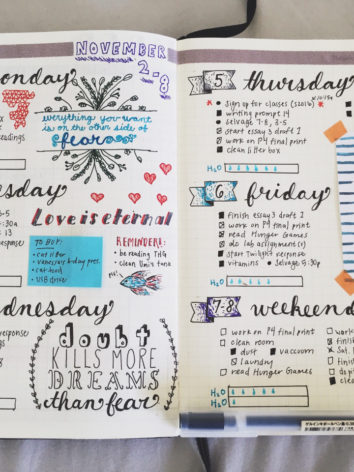 NOVEMBER
2-8
onday
everything you want
is on the other side of
fear
readings
sday
Love is eternal
TO BUY:
• cat litter
• Vanessa's b-day pres.
• cat food
• USB drive
REMINDER!:
• be reading THG
• clean Uni's tank
response
nesday
doubt
KILLS MORE
DREAMS
than fear
response
5 thursday
* • Sign up for classes (S2016) *
writing prompt 14
• Selvage 7-8, 3-5
start essay 3 draft 2
work on P4 final print
clean litter box
H2O
6 friday
finish essay 3 draft 2
work on P4 final print
read Hunger Games
do lab assignment(s)
start Twilight response
vitamins • Selvage 5:30p
H2O
7-8 weekend
work on P4 final print
clean room
dust vacuum
laundry
read Hunger Games
H2O